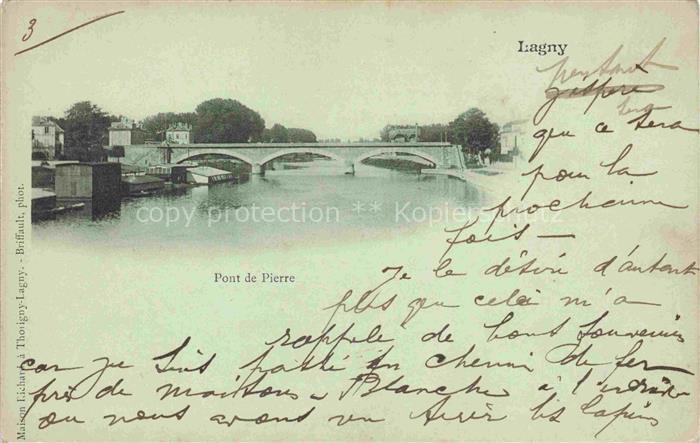 3
Lagny
pourtant
j'espère
que ce sera
pour la
prochaine
fois —
Pont de Pierre
Je le désire d'autant
plus que cela m'a
rappelé de bons souvenirs
car je suis passé en chemin de fer
près de maisons-Blanche à l'endroit
où nous avons vu tirer les lapins
Maison Eichard, à Thorigny-Lagny. - Briffault, phot.
copy protection by Kopierschutz